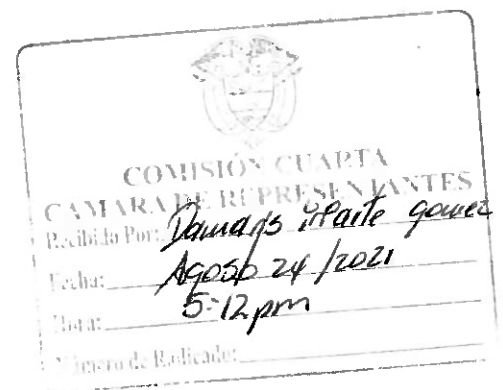 COMISIÓN CUARTA
CAMARA DE REPRESENTANTES
Recibido Por: Damaris gomez
Fecha: Agosto 24 / 2021
Hora: 5:12 pm
Número de Radicado: